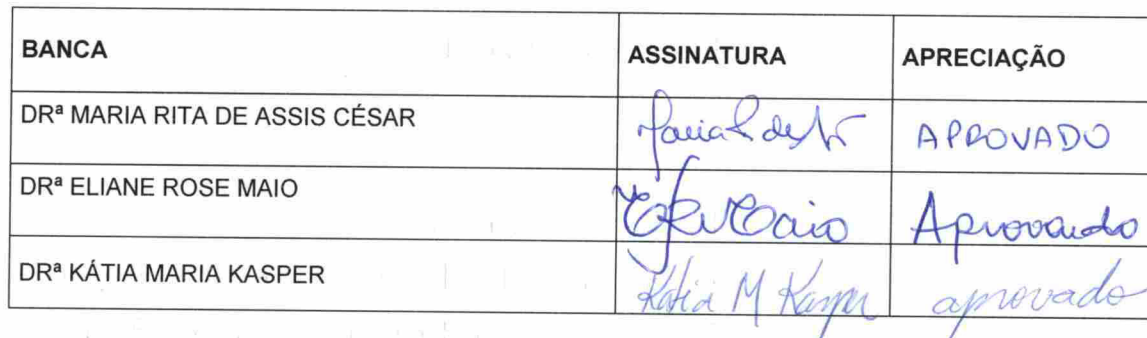 BANCA ASSINATURA APRECIAÇÃO
DRª MARIA RITA DE ASSIS CÉSAR APROVADO
DRª ELIANE ROSE MAIO Aprovando
DRª KÁTIA MARIA KASPER Katia M Kasper aprovado